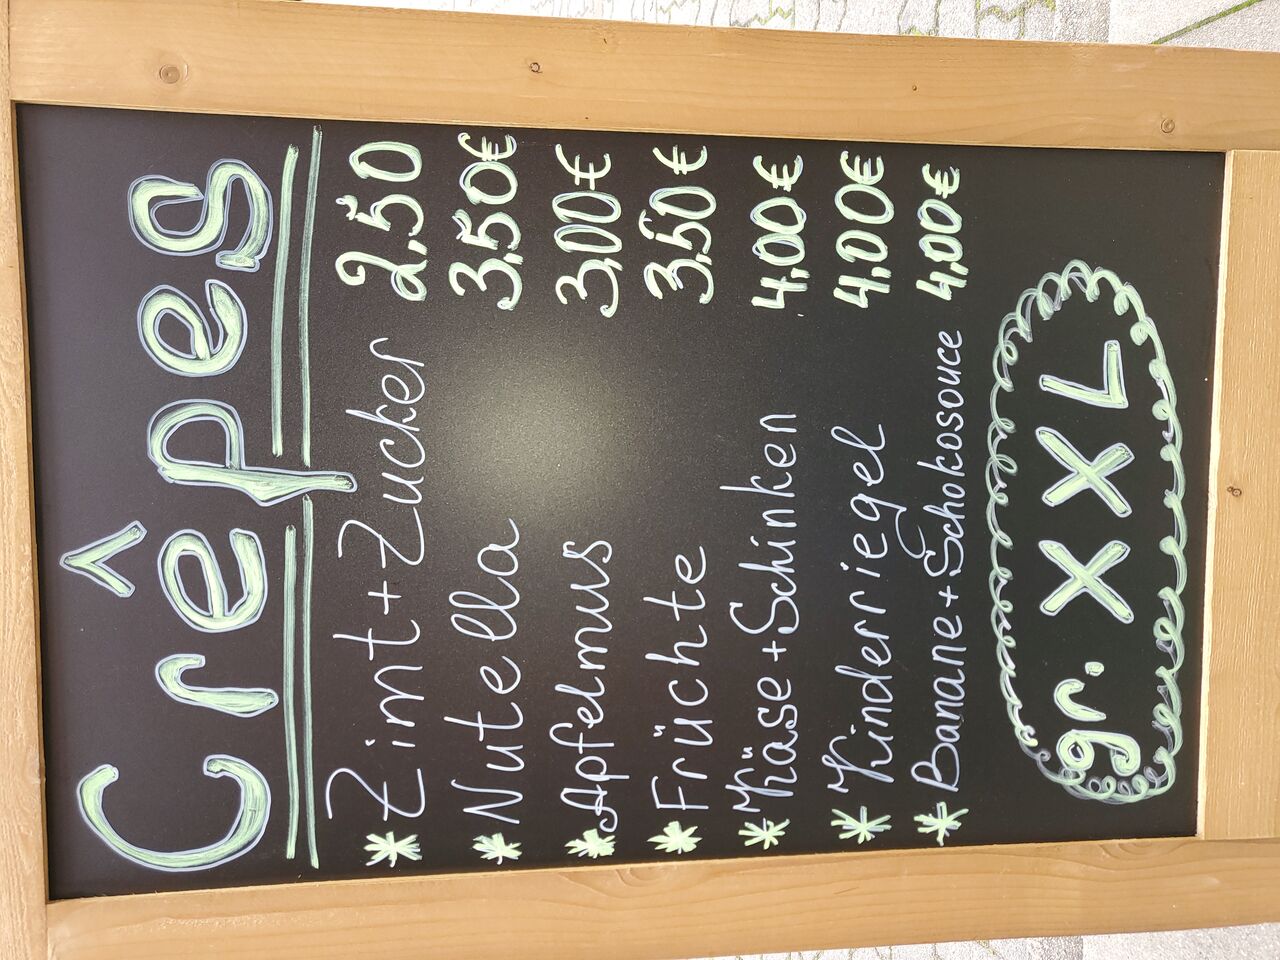 Crêpes
* Zimt + Zucker 2,50
* Nutella 3,50€
* Apfelmus 3,00€
* Früchte 3,50€
* Käse + Schinken 4,00€
* Kinderriegel 4,00€
* Banane + Schokosouce 4,00€
gr. XXL